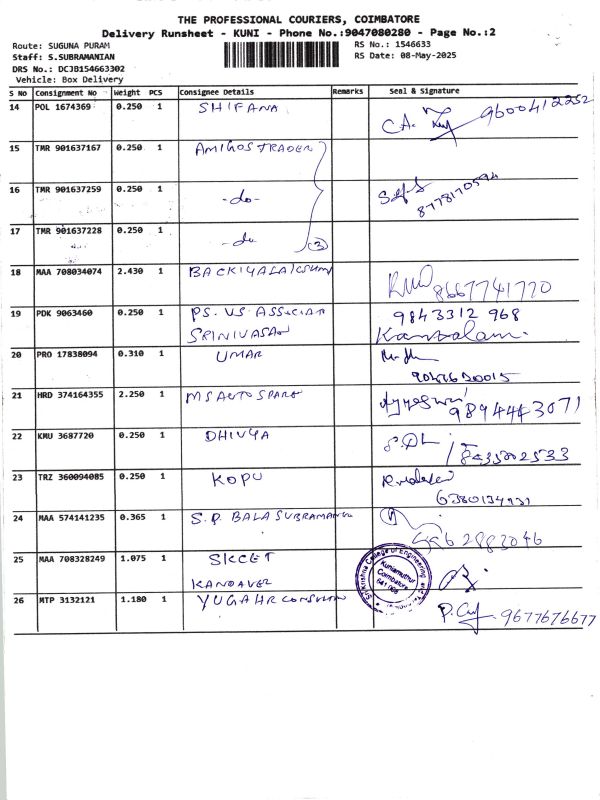 THE PROFESSIONAL COURIERS, COIMBATORE
Delivery Runsheet - KUNI - Phone No.:9047080280 - Page No.:2
Route: SUGUNA PURAM
RS No.: 1546633
Staff: S.SUBRAMANIAN
RS Date: 08-May-2025
DRS No.: DCJB154663302
Vehicle: Box Delivery
S No Consignment No Weight PCS Consignee Details Remarks Seal & Signature
14 POL 1674369 0.250 1 SHIFANA 9600412252
15 TMR 901637167 0.250 1 AMIGOS TRADER
16 TMR 901637259 0.250 1 -do- 8778170594
17 TMR 901637228 0.250 1 -do (3)
18 MAA 708034074 2.430 1 8667741770
19 PDK 9063460 0.250 1 PS. VS. ASSOCIAT 9843312 968
SRINIVASAN
20 PRO 17838094 0.310 1 UMAR
21 HRD 374164355 2.250 1 MS AUTO SPARE
22 KMU 3687720 0.250 1 DHIVYA
23 TRZ 360094085 0.250 1 KOPU
24 MAA 574141235 0.365 1 S.P. BALA SUBRAMANI
25 MAA 708328249 1.075 1 SKCET
KANDAVEL
Sri Krishna College of Engineering and
Kuniamuthur
Coimbatore
641 008
26 MTP 3132121 1.180 1 YUGA HR CONSULTAN 9677676677